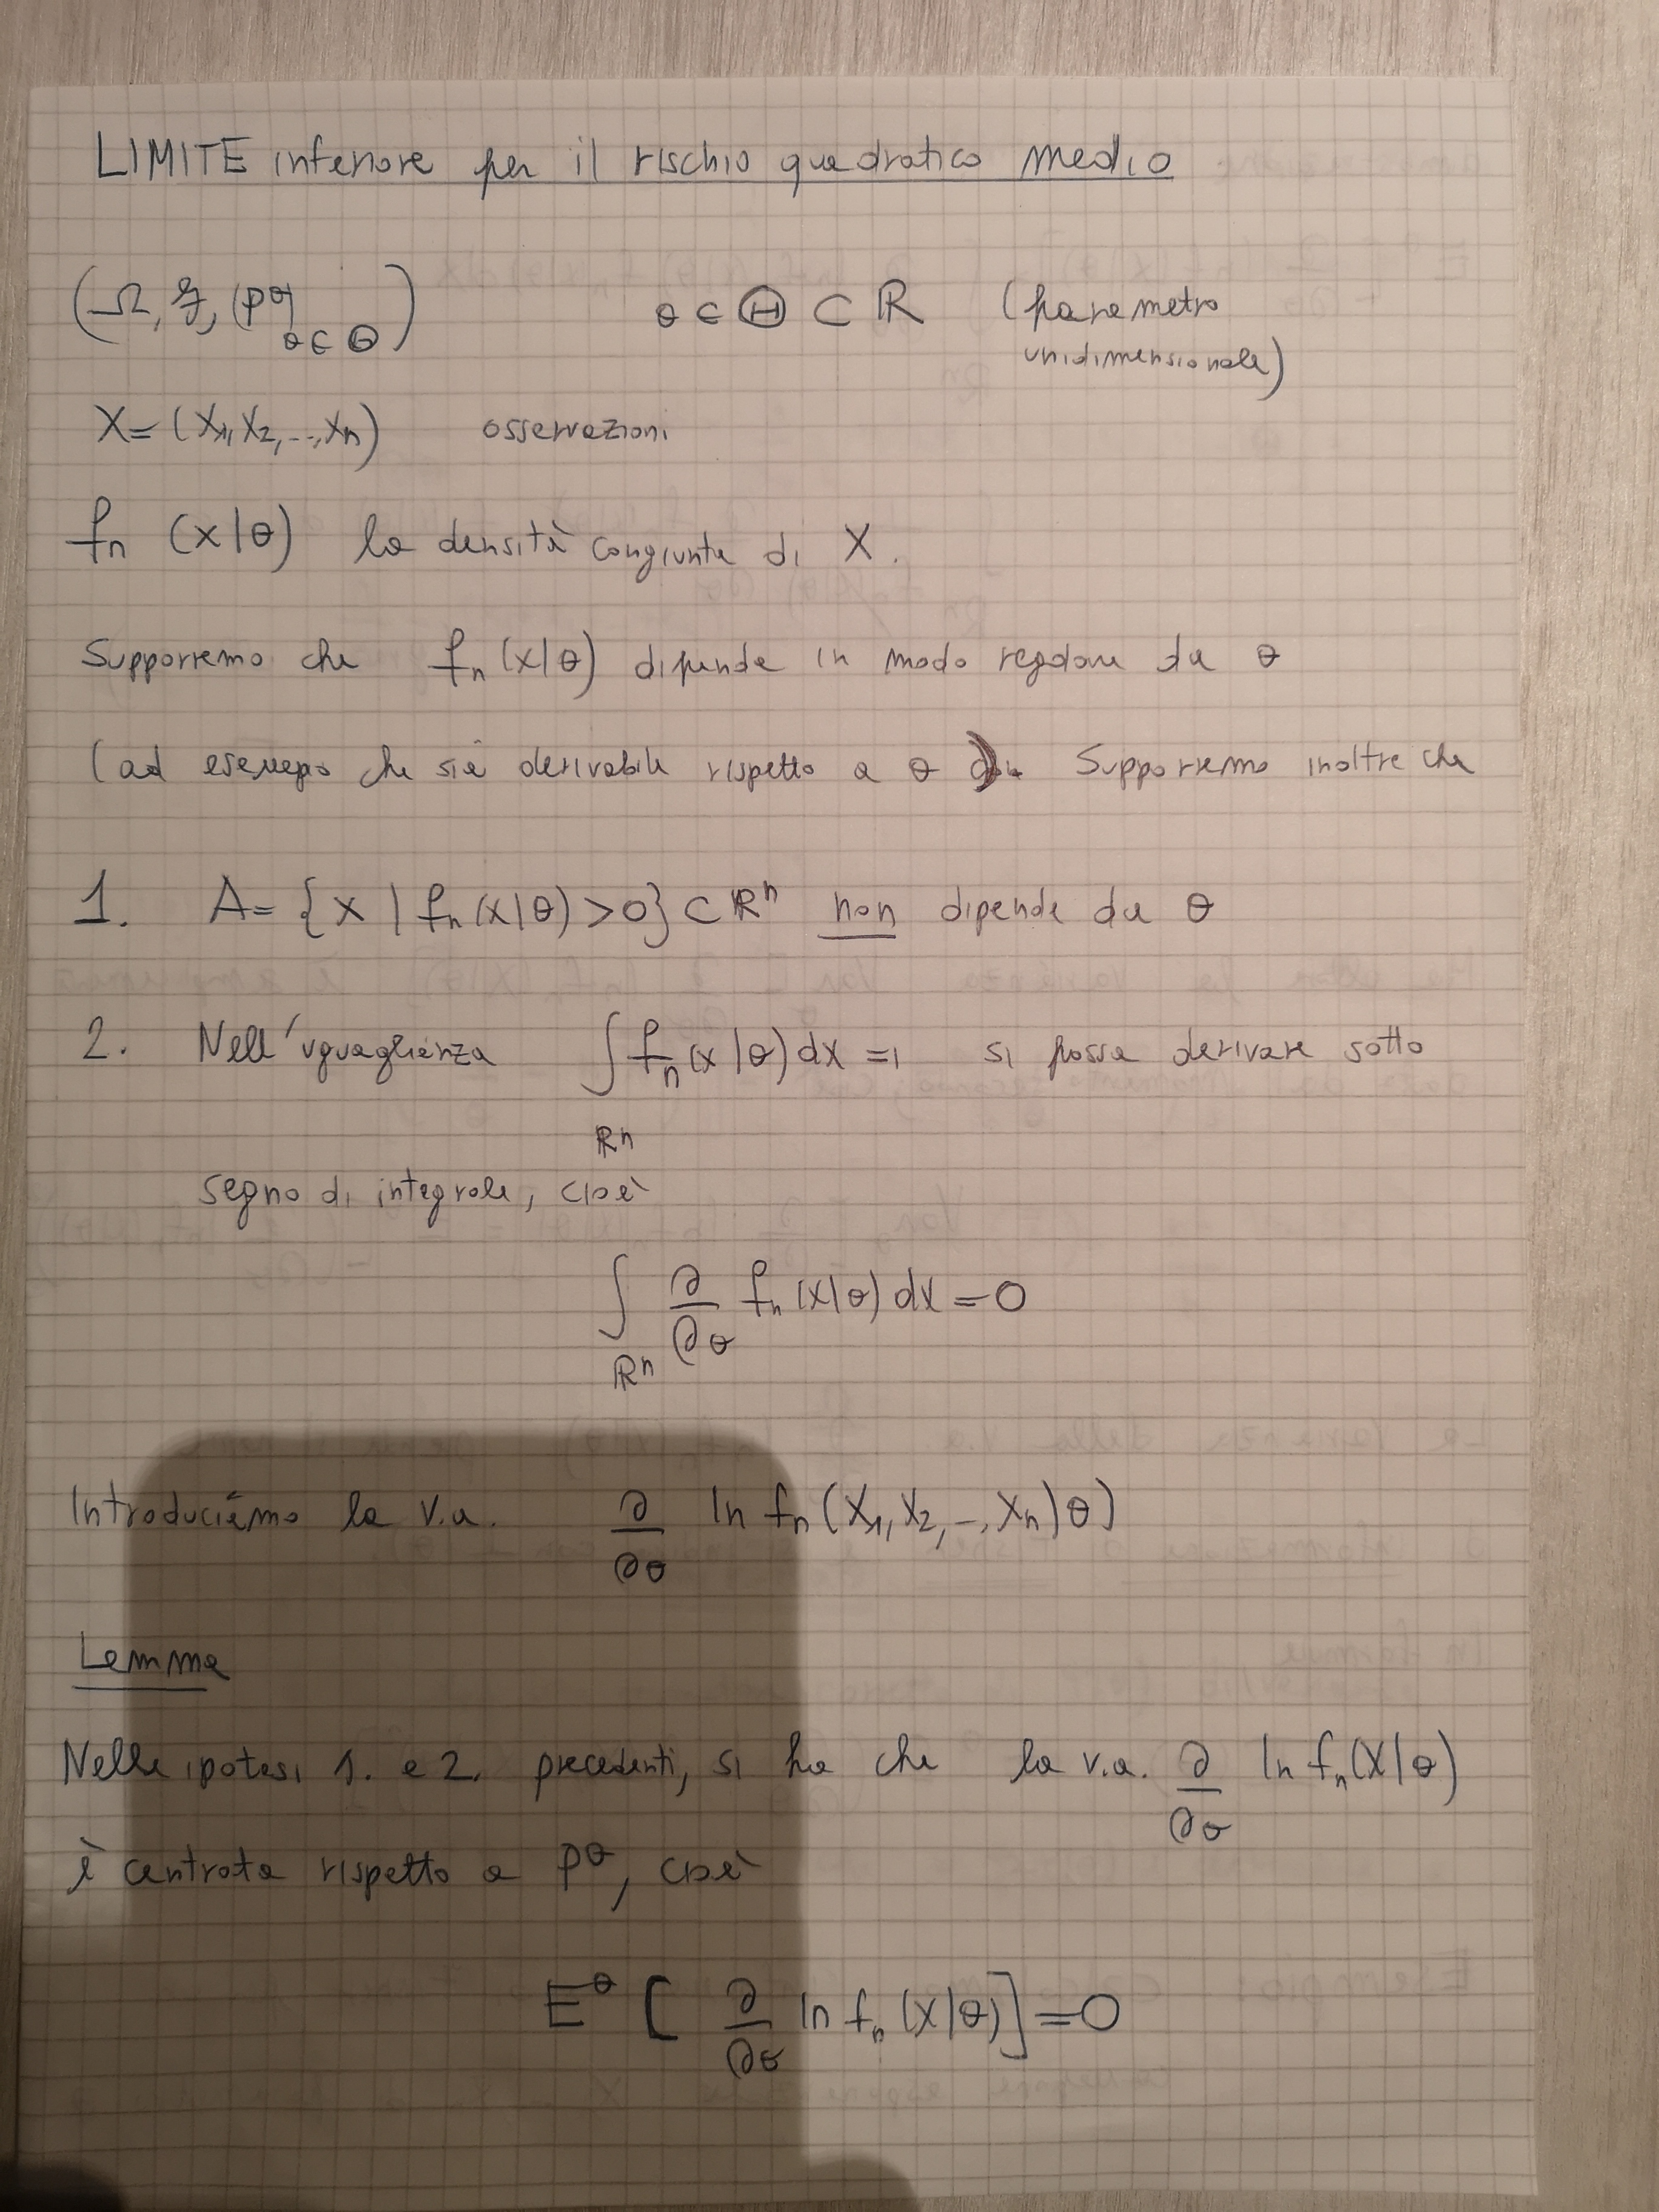 LIMITE inferiore per il rischio quadratico medio
(Ω, F, (P^θ)_{θ∈Θ}) θ ∈ Θ ⊂ ℝ (parametro
unidimensionale)
X = (X₁, X₂, ..., Xₙ) osservazioni
fₙ (x|θ) la densità congiunta di X.
Supporremo che fₙ (x|θ) dipende in modo regolare da θ
(ad esempio che sia derivabile rispetto a θ). Supporremo inoltre che
1. A = {x | fₙ(x|θ) > 0} ⊂ ℝⁿ non dipende da θ
2. Nell'uguaglianza ∫_{ℝⁿ} fₙ(x|θ) dx = 1 si possa derivare sotto
segno di integrale, cioè
∫_{ℝⁿ} ∂/∂θ fₙ(x|θ) dx = 0
Introduciamo la v.a. ∂/∂θ ln fₙ(X₁, X₂, ..., Xₙ|θ)
Lemma
Nelle ipotesi 1. e 2. precedenti, si ha che la v.a. ∂/∂θ ln fₙ(X|θ)
è centrata rispetto a P^θ, cioè
E^θ [∂/∂θ ln fₙ(X|θ)] = 0